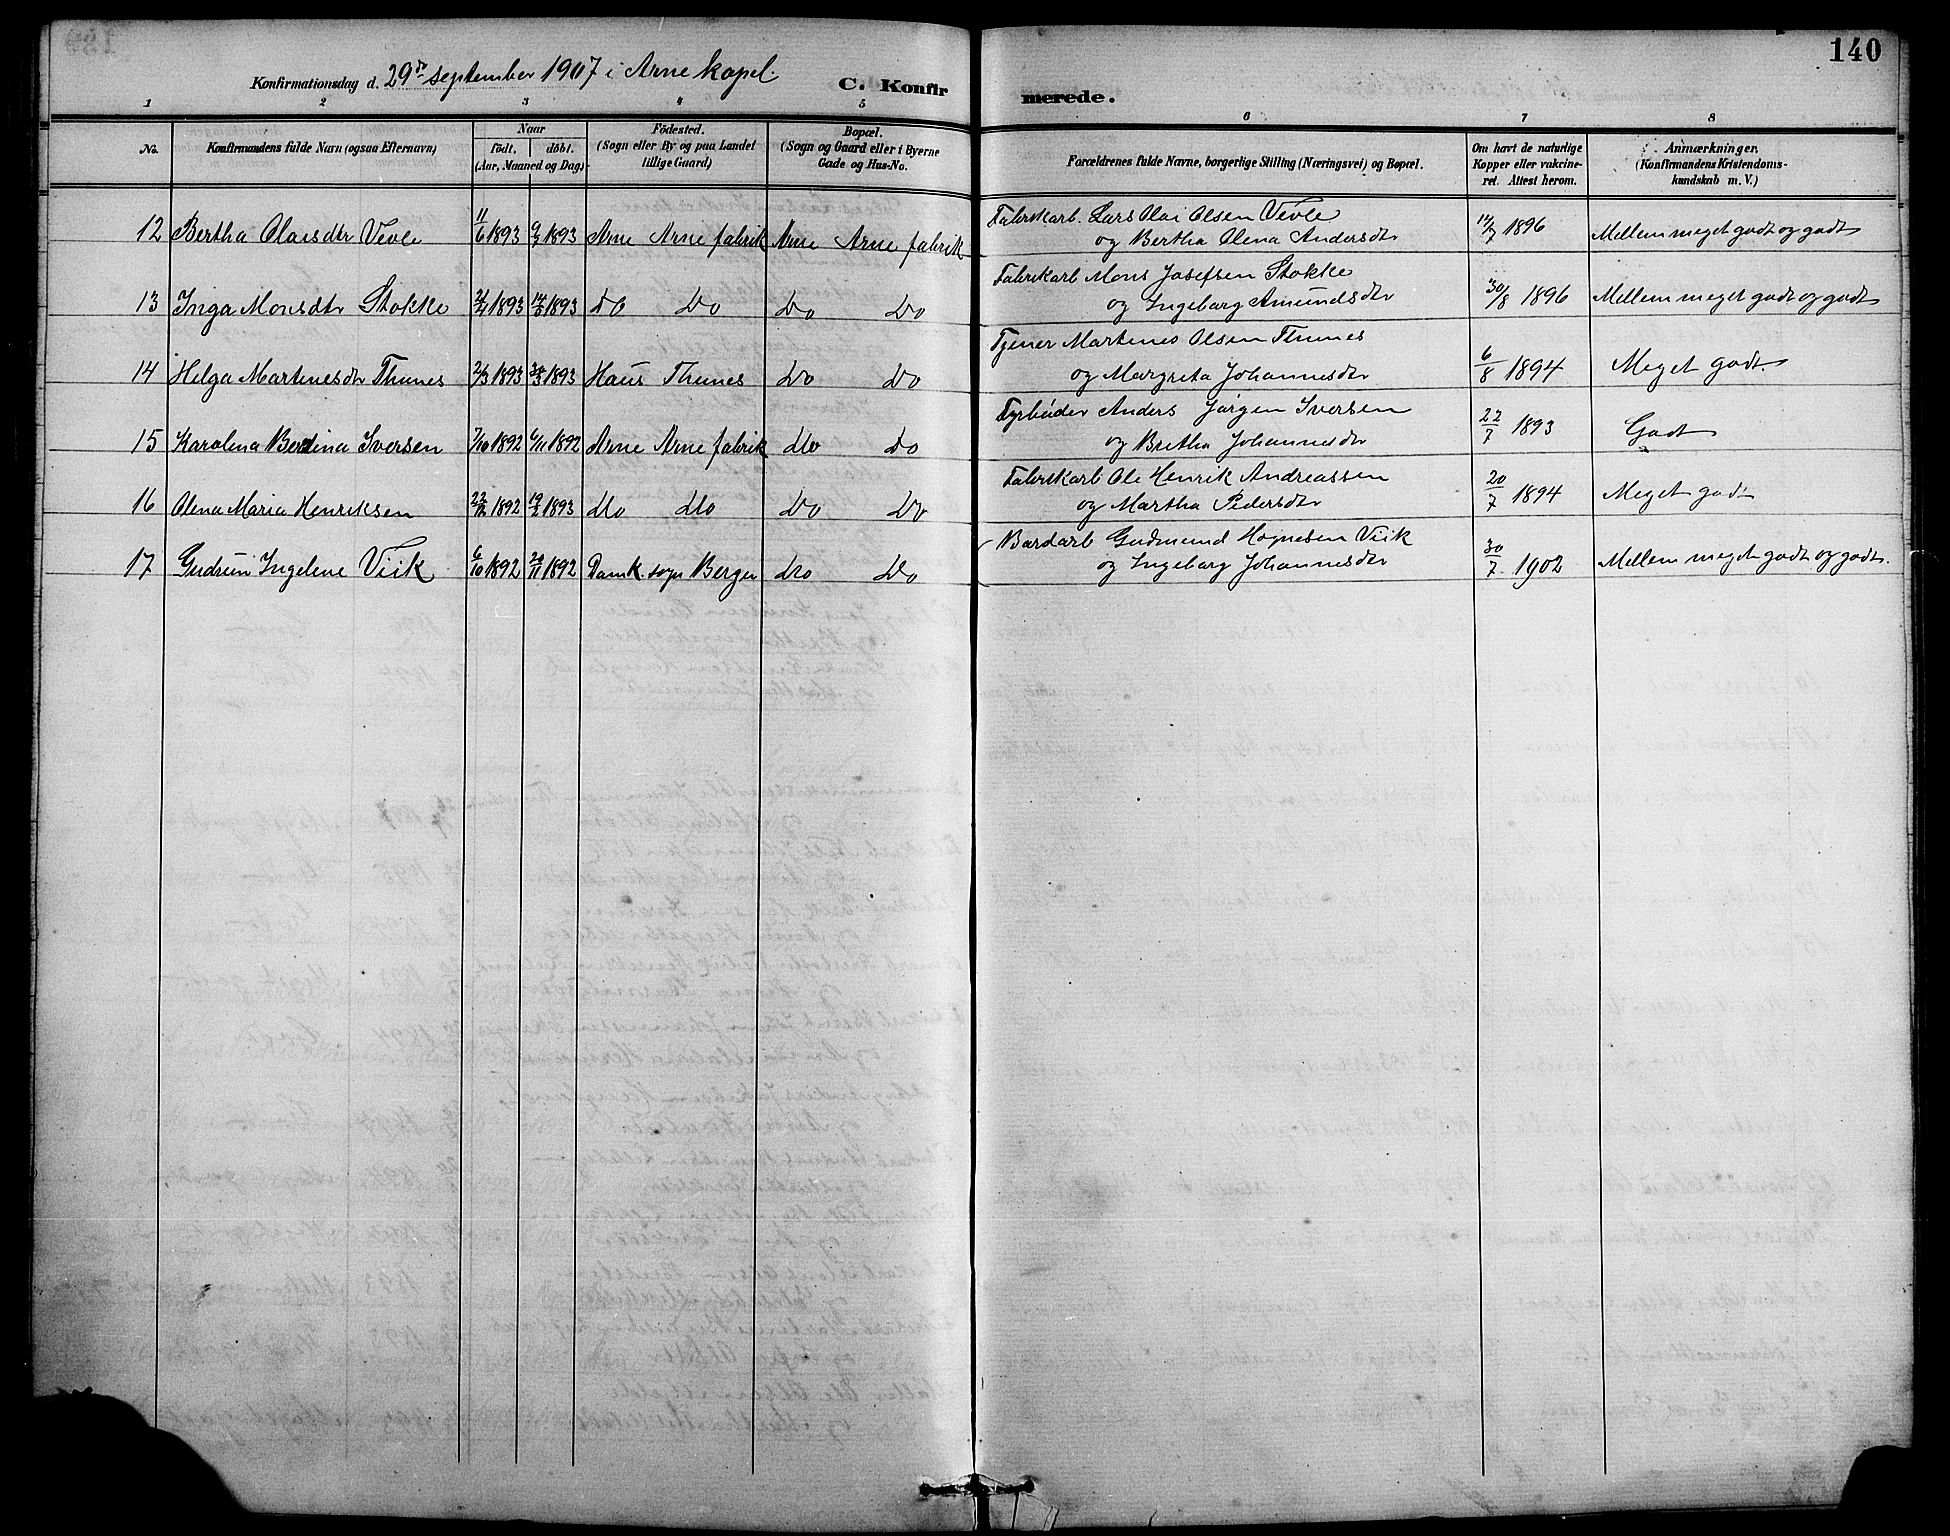 140
Konfirmationsdag d. 29de september 1907 i Arne kapel.
C. Konfirmerede.
1 2 3 4 5 6 7 8
No. Konfirmandens fulde Navn (ogsaa Efternavn) Naar födt. döbt. (Aar, Maaned og Dag) Födested. (Sogn eller By og paa Landet tillige Gaard) Bopæl. (Sogn og Gaard eller i Byerne Gade og Hus-No. Forældrenes fulde Navne, borgerlige Stilling (Næringsvei) og Bopæl. Om havt de naturlige Kopper eller vakcineret. Attest herom. Anmærkninger. (Konfirmandens Kristendomskundskab m. V.)
12 Bertha Olaisdtr Vevle 11/6 1893 9/7 1893 Arne Arne fabrik Arne Arne fabrik Fabrikarb. Lars Olai Olsen Vevle 1896 Mellem meget godt og godt
og Bertha Olena Andersdtr
13 Inga Monsdtr Stokke 1893 1893 Do Do Do Do Fabrikarb Mons Josefsen Stokke 30/8 1896 Mellem meget godt og godt
og Ingeborg Amundsdtr
14 Helga Martinesdtr Thunes 2/3 1893 1893 Haus Thunes Do Do Tjener Martines Olsen Thunes 6/8 1894 Meget godt
og Margreta Johannesdtr
15 Karolina Berdina Iversen 7/10 1892 1892 Arne Arne fabrik Do Do Fyrbøder Anders Jørgen Iversen 22/7 1893 Godt
og Bretha Johannesdtr
16 Olena Maria Henriksen 22/12 1892 19/2 1893 Do Do Do Do Fabrikarb Ole Henrik Andreassen 20/7 1894 Meget godt
og Martha Pedersdtr
17 Gudrun Ingelene Viik 6/10 1892 1892 Domk. sogn Bergen Do Do Bordarb Gudmund Hognesen Viik 30/7 1902 Mellem meget godt og godt.
og Ingeborg Johannesdtr